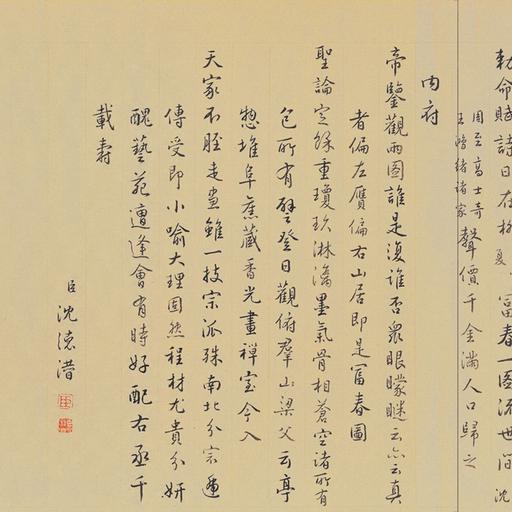 勅命賦詩日在柳夏富春一圖流世間沈
周至高士奇王鴻緒諸家聲價千金滿人口歸之
内府
帝鑒觀兩圖誰是復誰否眾眼曚瞇云亦云真
者偏左贋偏右山居即是富春圖
聖論定餘重瓊玖淋漓墨氣骨相蒼空諸所有
包所有譬登日觀俯羣山梁父云亭
惣堆阜舊藏香光畫禪室今入
天家不脛走畫雖一技宗派殊南北分宗遞
傳受即小喻大理固然程材尤貴分妍
醜藝苑遭逢會有時好配右丞千
載壽
臣沈德潛